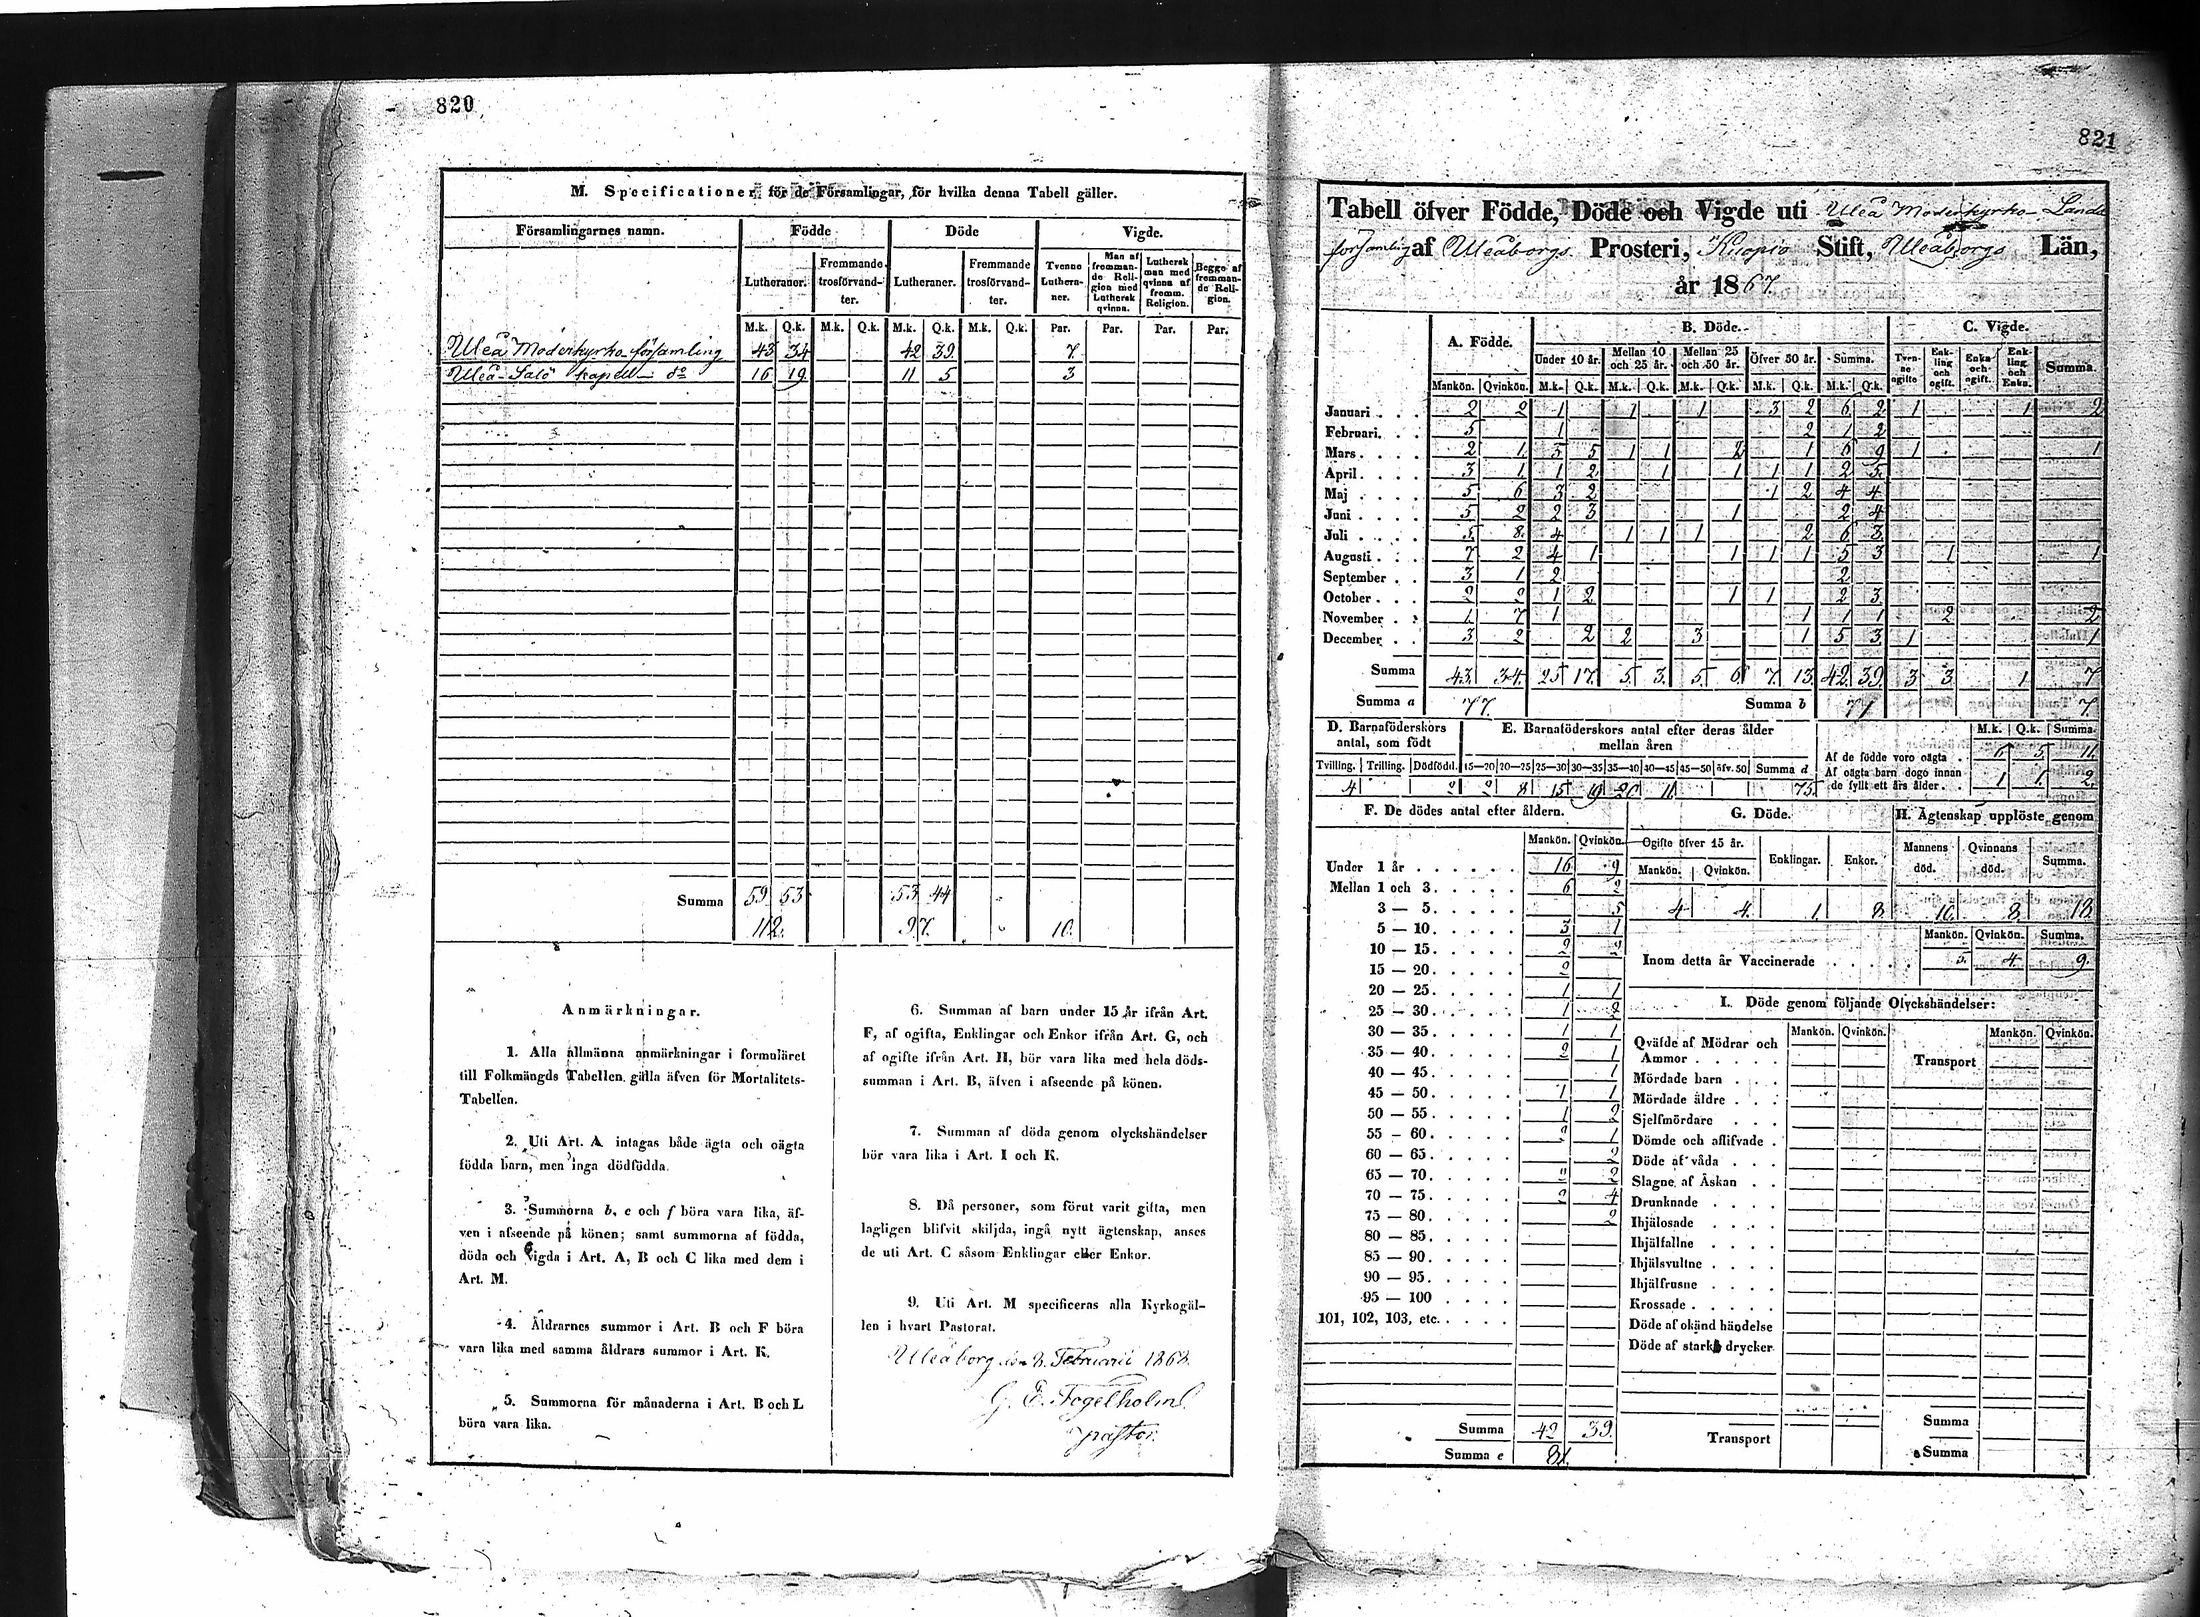 820
M. Specificationer för de Församlingar, för hvilka denna Tabell gäller.
Församlingarnes namn. Födde Döde Vigde.
Lutheraner. Fremmande trosförvandter. Lutheraner. Fremmande trosförvandter. Tvenne Lutheraner. Man af fremmande Religion med Luthersk qvinna. Luthersk man med qvinna af fremm. Religion. Begge af fremmande Religion.
M.k. Q.k. M.k. Q.k. M.k. Q.k. M.k. Q.k. Par. Par. Par. Par.
Uleå Moderkyrko församling 43 34 42 39. 7.
Uleå-Salo kapell- do 16 19 11 5 3
Summa 59 53 53 44
112. 97. 10.
Anmärkningar.
1. Alla allmänna anmärkningar i formuläret
till Folkmängds Tabellen gälla äfven för Mortalitets-
Tabellen.
2. Uti Art. A intagas både ägta och oägta
födda barn, men inga dödfödda.
3. Summorna b, e och f böra vara lika, äf-
ven i afseende på könen; samt summorna af födda,
döda och vigda i Art. A, B och C lika med dem i
Art. M.
4. Åldrarnes summor i Art. B och F böra
vara lika med samma åldrars summor i Art. K.
5. Summorna för månaderna i Art. B och L
böra vara lika.
6. Summan af barn under 15 år ifrån Art.
F, af ogifta, Enklingar och Enkor ifrån Art. G, och
af ogifte ifrån Art. H, bör vara lika med hela döds-
summan i Art. B, äfven i afseende på könen.
7. Summan af döda genom olyckshändelser
bör vara lika i Art. I och K.
8. Då personer, som förut varit gifta, men
lagligen blifvit skiljda, ingå nytt ägtenskap, anses
de uti Art. C såsom Enklingar eller Enkor.
9. Uti Art. M specificeras alla Kyrkogäl-
len i hvart Pastorat.
Uleåborg den 8. Februarii 1868.
G. E. Fogelholm
pastor.
821
Tabell öfver Födde, Döde och Vigde uti Uleå Moderkyrko Lands
församling af Uleåborgs Prosteri, Kuopio Stift, Uleåborgs Län,
år 1867.
A. Födde. B. Döde. C. Vigde.
Under 10 år. Mellan 10 och 25 år. Mellan 25 och 50 år. Öfver 50 år. Summa. Tvenne ogifte Enkling och ogift. Enka och ogift. Enkling och Enka. Summa.
Mankön. Qvinkön. M.k. Q.k. M.k. Q.k. M.k. Q.k. M.k. Q.k. M.k. Q.k.
Januari 2 2 1 1 1 3 2 6 2 1 1 2
Februari. 5 1 2 1 2
Mars 2 1 5 5 1 1 2 1 6 9 1 1
April 3 1 1 2 1 1 1 1 2 5
Maj 5 6 3 2 1 2 4 4
Juni 5 2 2 3 1 2 4
Juli 5 8 4 1 1 1 2 6 3
Augusti 7 2 4 1 1 1 1 5 3 1 1
September 3 1 2 2
October 2 2 1 2 1 1 2 3
November 1 7 1 1 1 1 2 2
December 3 2 2 2 3 1 5 3 1 1
Summa 43. 34. 25 17. 5. 3. 5. 6. 7. 13. 42. 39. 3 3. 1 7
Summa a 77. Summa b 7.
D. Barnaföderskors antal, som födt
E. Barnaföderskors antal efter deras ålder mellan åren
M.k. Q.k. Summa.
Tvilling. Trilling. Dödfödd. 15—20 20—25 25—30 30—35 35—40 40—45 45—50 öfv. 50 Summa d
4 2 2 8 15 19 20 11. 75.
Af de födde voro oägta 6 5 11.
Af oägta barn dogo innan
de fyllt ett års ålder 1 1. 2.
F. De dödes antal efter åldern.
Mankön. Qvinkön.
Under 1 år 16 9
Mellan 1 och 3 6 2
3 — 5 5
5 — 10 3 1
10 — 15 2 2
15 — 20 2
20 — 25 1 1
25 — 30 1 2
30 — 35 1 1
35 — 40 2 1
40 — 45 1
45 — 50 1 1
50 — 55 1 2
55 — 60 2 1
60 — 65 2
65 — 70 2 2
70 — 75 2 4
75 — 80 2
80 — 85
85 — 90
90 — 95
95 — 100
101, 102, 103, etc.
Summa 42 39.
Summa e 81.
G. Döde.
Ogifte öfver 15 år. Enklingar. Enkor.
Mankön. Qvinkön.
4 4. 1. 8
H. Ägtenskap upplöste genom
Mannens död. Qvinnans död. Summa.
10. 8. 18.
Mankön. Qvinkön. Summa.
Inom detta år Vaccinerade 5. 4. 9.
I. Döde genom följande Olyckshändelser:
Mankön. Qvinkön. Mankön. Qvinkön.
Qväfde af Mödrar och
Ammor
Transport
Mördade barn
Mördade äldre
Sjelfmördare
Dömde och aflifvade
Döde af våda
Slagne af Åskan
Drunknade
Ihjälosade
Ihjälfallne
Ihjälsvultne
Ihjälfrusne
Krossade
Döde af okänd händelse
Döde af starka drycker
Transport
Summa
Summa